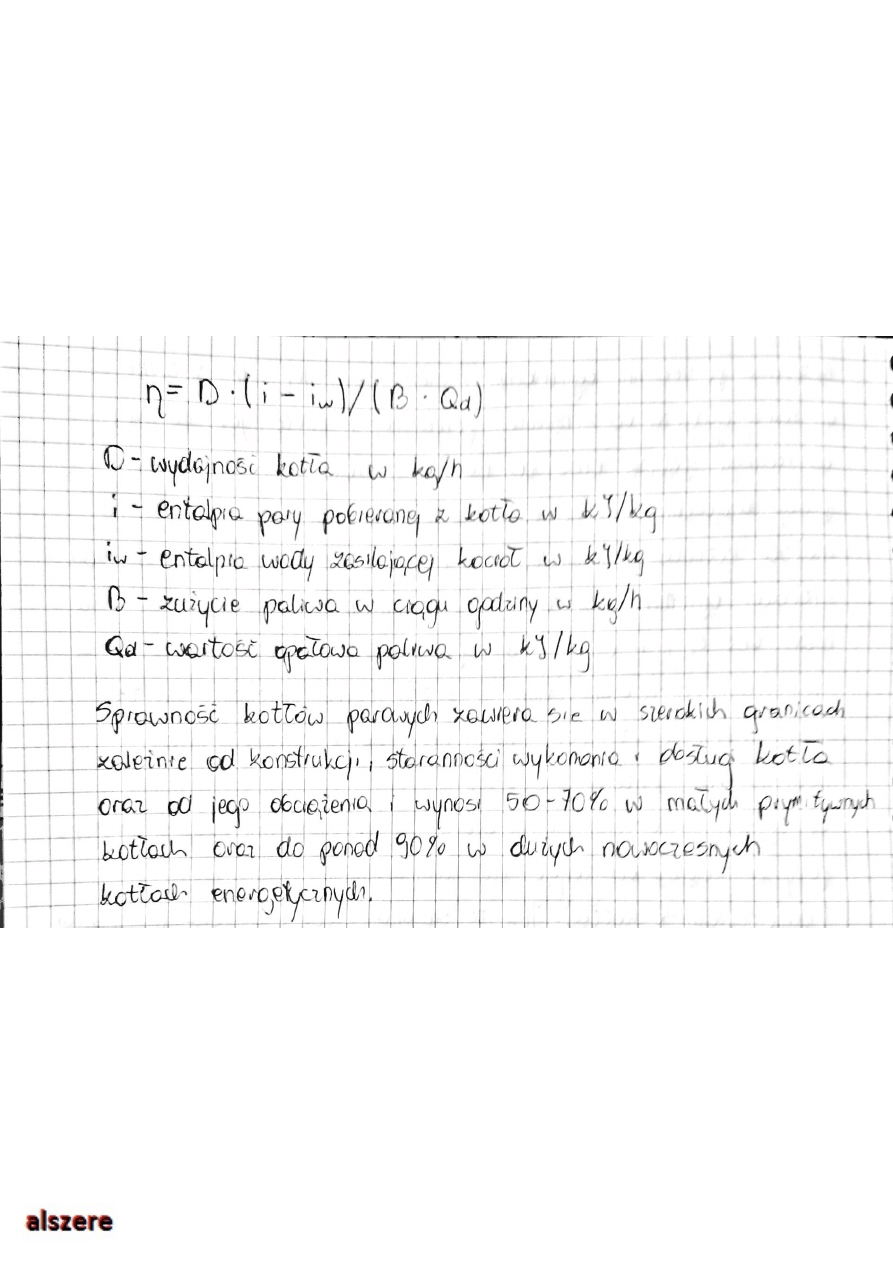 η= D · (i - iw)/(B · Qd)
D - wydajność kotła w kg/h
i - entalpia pary pobieranej z kotła w kJ/kg
iw - entalpia wody zasilającej kocioł w kJ/kg
B - zużycie paliwa w ciągu godziny w kg/h
Qd - wartość opałowa paliwa w kJ/kg
Sprawność kotłów parowych zawiera sie w szerokich granicach
zależnie od konstrukcji, staranności wykonania i obsługi kotła
oraz od jego obciążenia i wynosi 50-70% w małych prymitywnych
kotłach oraz do ponad 90% w dużych nowoczesnych
kotłach energetycznych.
alszere